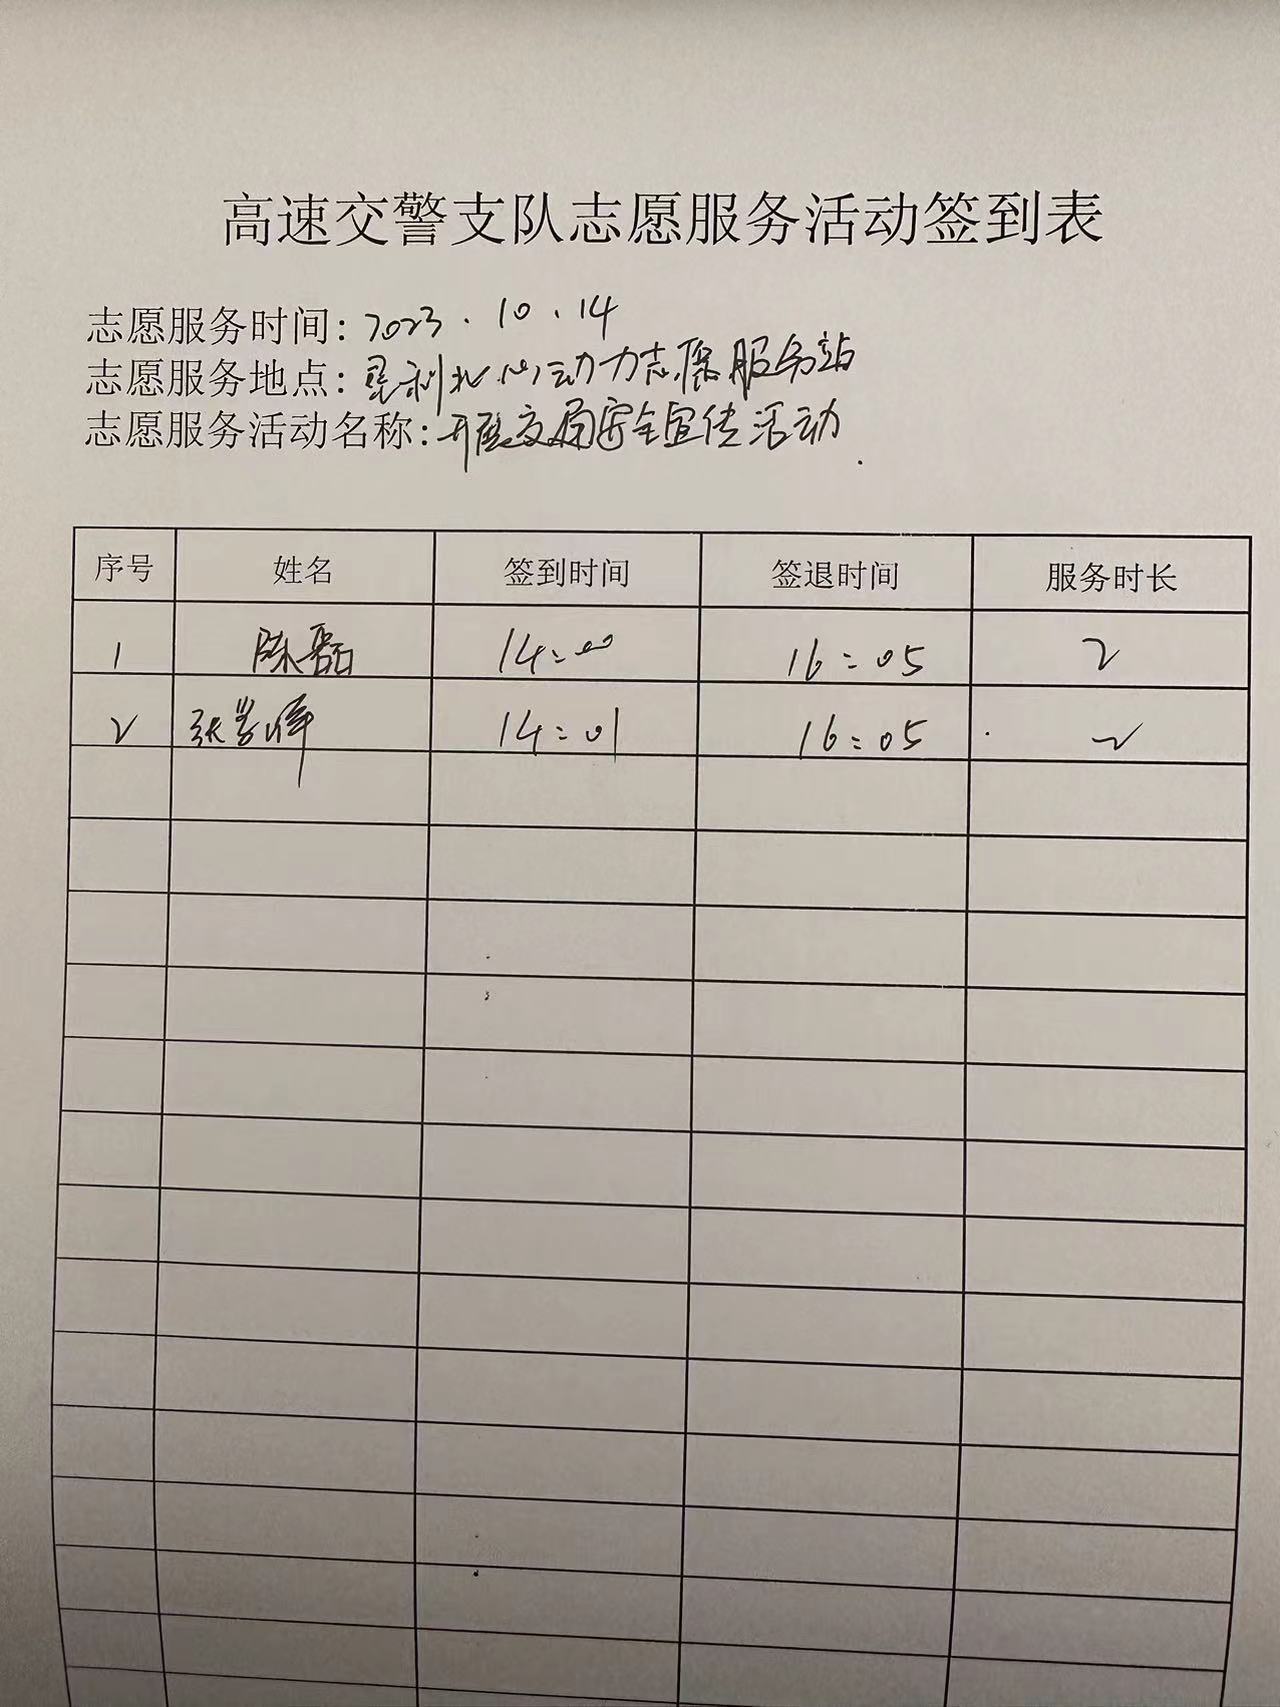 高速交警支队志愿服务活动签到表
志愿服务时间：2023.10.14
志愿服务地点：垦利北心动力志愿服务站
志愿服务活动名称：开展交通安全宣传活动.
序号 姓名 签到时间 签退时间 服务时长
1 陈磊 14:00 16:05 2
2 张 14:01 16:05 2